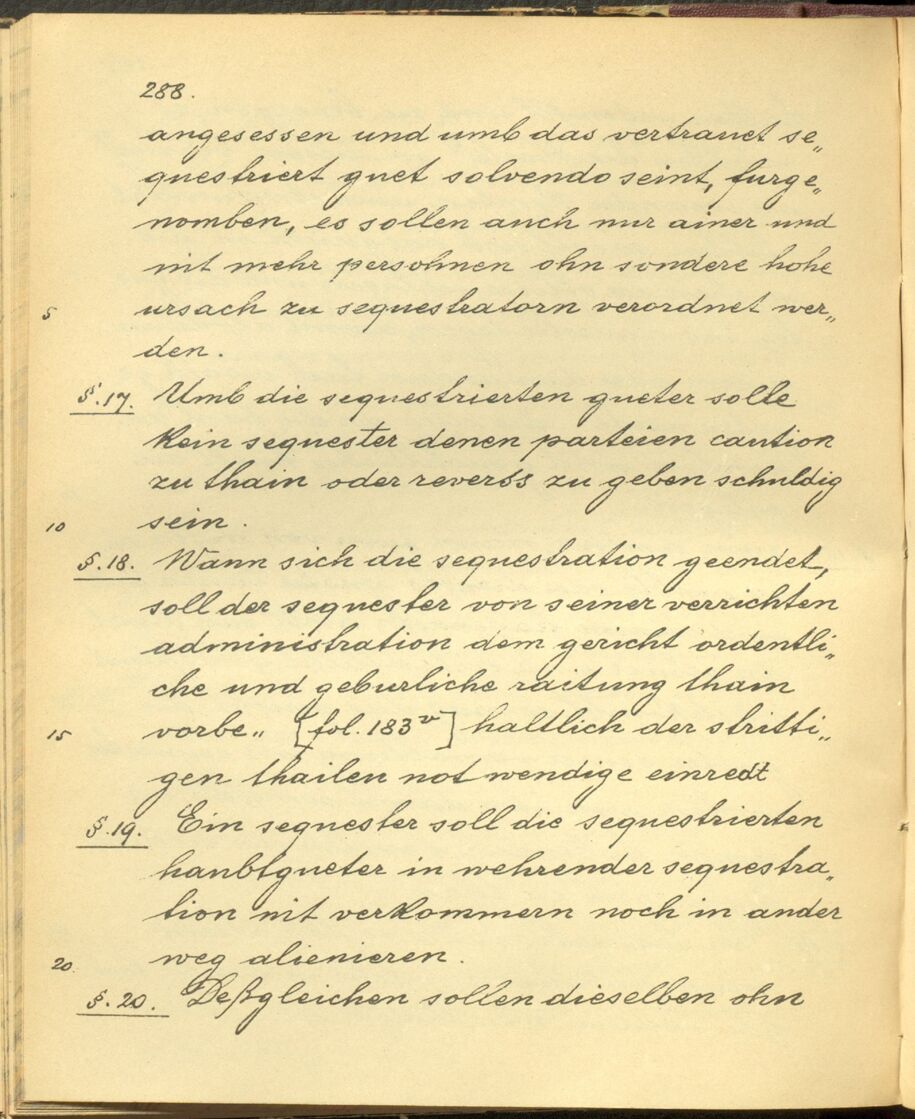 288.
angesessen und umb das vertrauet se„
questriert guet solvendo seint, furge„
nomben, es sollen auch nur ainer und
nit mehr persohnen ohn sondere hohe
5 ursach zu sequestratorn verordnet wer„
den.
§.17. Umb die sequestrierten gueter solle
kein sequester denen parteien caution
zu thain oder reverss zu geben schuldig
10 sein.
§.18. Wann sich die sequestration geendet,
soll der sequester von seiner verrichten
administration dem gericht ordentli„
che und geburliche raitung thain
15 vorbe„ [fol. 183v] haltlich der stritti„
gen thailen notwendige einredt
§.19. Ein sequester soll die sequestrierten
haubtgueter in wehrender sequestra„
tion nit verkommern noch in ander
20. weg alienieren.
§.20. Deßgleichen sollen dieselben ohn